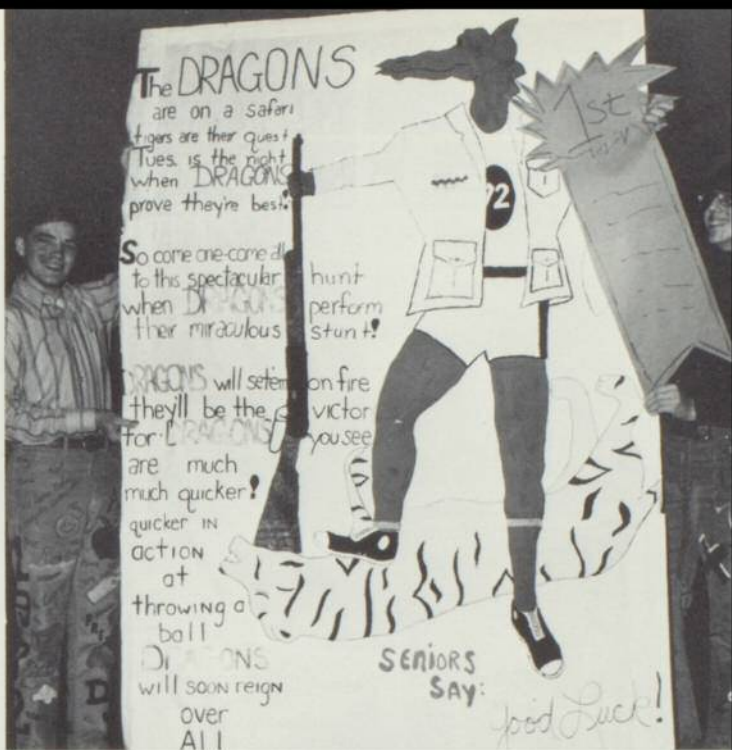 The DRAGONS
are on a safari
tigers are their quest
Tues. is the night
when DRAGONS
prove they're best!
So come one-come all
to this spectacular hunt
when DRAGONS perform
their miraculous stunt!
DRAGONS will set em on fire
they'll be the victor
for DRAGONS you see
are much
much quicker!
quicker IN
action
at
throwing a
ball
DRAGONS
will soon reign
over
ALL
SENIORS
SAY:
Good Luck!
1st